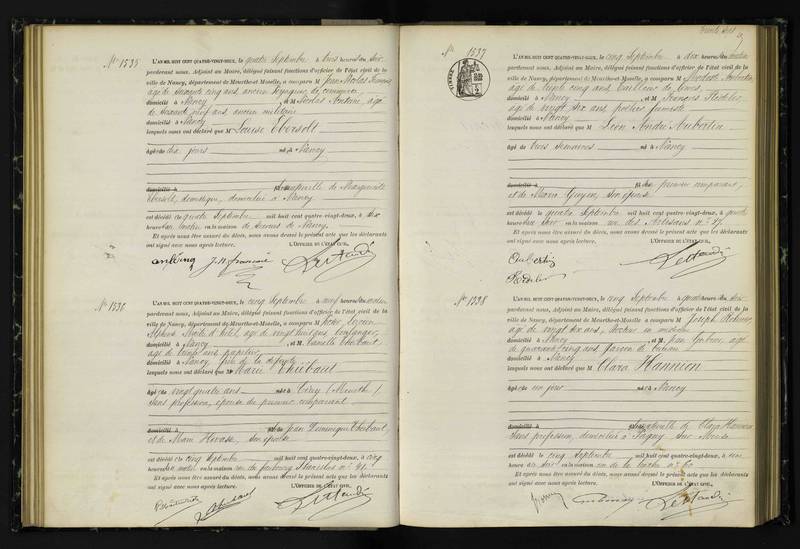 N° 1535
L'AN MIL HUIT CENT QUATRE-VINGT-DEUX, le quatre Septembre à trois heures du soir
pardevant nous, Adjoint au Maire, délégué faisant fonctions d'officier de l'état civil de la
ville de Nancy, département de Meurthe-et-Moselle, a comparu M Jean Nicolas François
âgé de soixante cinq ans, ancien
domicilié à Nancy, et M Nicolas Antoine, âgé
de soixante neuf ans, ancien militaire
domicilié à Nancy
lesquels nous ont déclaré que M Louise Ebersolt
âgée de dix jours né à Nancy
domicilié à fille naturelle de Marguerite
Ebersolt, domestique, domiciliée à Nancy
est décédé le quatre Septembre mil huit cent quatre-vingt-deux, à dix
heures du matin en la maison de Secours de Nancy.
Et après nous être assuré du décès, nous avons dressé le présent acte que les déclarants
ont signé avec nous après lecture. L'OFFICIER DE L'ÉTAT CIVIL,
N° 1536
L'AN MIL HUIT CENT QUATRE-VINGT-DEUX, le cinq Septembre à cinq heures du
pardevant nous, Adjoint au Maire, délégué faisant fonctions d'officier de l'état civil de la
ville de Nancy, département de Meurthe-et-Moselle, a comparu M Victor
Alphonse âgé de vingt huit ans, boulanger
domicilié à Nancy, et M Camille Thiébaut,
âgé de trente ans, papetier
domicilié à Nancy, frère de la défunte
lesquels nous ont déclaré que M Marie Thiébaut
âgée de vingt quatre ans née à Cirey (Meurthe)
sans profession, épouse du premier comparant
domicilié à fille de Jean Dominique Thiébaut,
et de Marie son épouse
est décédé le cinq Septembre mil huit cent quatre-vingt-deux, à cinq
heures du matin en la maison rue du faubourg Stanislas n° 41
Et après nous être assuré du décès, nous avons dressé le présent acte que les déclarants
ont signé avec nous après lecture. L'OFFICIER DE L'ÉTAT CIVIL,
N° 1537
L'AN MIL HUIT CENT QUATRE-VINGT-DEUX, le cinq Septembre à dix heures du matin
pardevant nous, Adjoint au Maire, délégué faisant fonctions d'officier de l'état civil de la
ville de Nancy, département de Meurthe-et-Moselle, a comparu M Aubertin
âgé de trente cinq ans, tailleur de limes
domicilié à Nancy, et M François
âgé de vingt six ans, poëlier fumiste
domicilié à Nancy
lesquels nous ont déclaré que M Léon André Aubertin
âgé de trois semaines né à Nancy
domicilié à fils du premier comparant,
et de Marie Guyon, son épouse
est décédé le quatre Septembre mil huit cent quatre-vingt-deux, à
heures du soir en la maison rue des Artisans n° 47
Et après nous être assuré du décès, nous avons dressé le présent acte que les déclarants
ont signé avec nous après lecture. L'OFFICIER DE L'ÉTAT CIVIL,
Aubertin
N° 1538
L'AN MIL HUIT CENT QUATRE-VINGT-DEUX, le cinq Septembre à quatre heures du soir
pardevant nous, Adjoint au Maire, délégué faisant fonctions d'officier de l'état civil de la
ville de Nancy, département de Meurthe-et-Moselle, a comparu M Joseph
âgé de vingt six ans, docteur en médecine
domicilié à Nancy, et M Jean âgé
de quarante cinq ans, garçon de bureau
domicilié à Nancy
lesquels nous ont déclaré que M Clara Hannion
âgée de un jour née à Nancy
domicilié à fille naturelle de Clara Hannion
sans profession, domiciliée à Pagny sur Meuse
est décédé le cinq Septembre mil huit cent quatre-vingt-deux, à une
heure du soir en la maison rue de n° 60
Et après nous être assuré du décès, nous avons dressé le présent acte que les déclarants
ont signé avec nous après lecture. L'OFFICIER DE L'ÉTAT CIVIL,